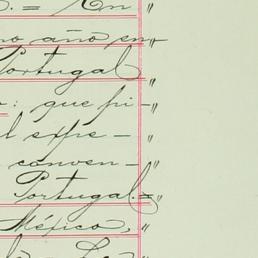 . = En "
no año en- "
Portugal "
: que pi- "
l expe- "
conven- "
Portugal. = "
México, "